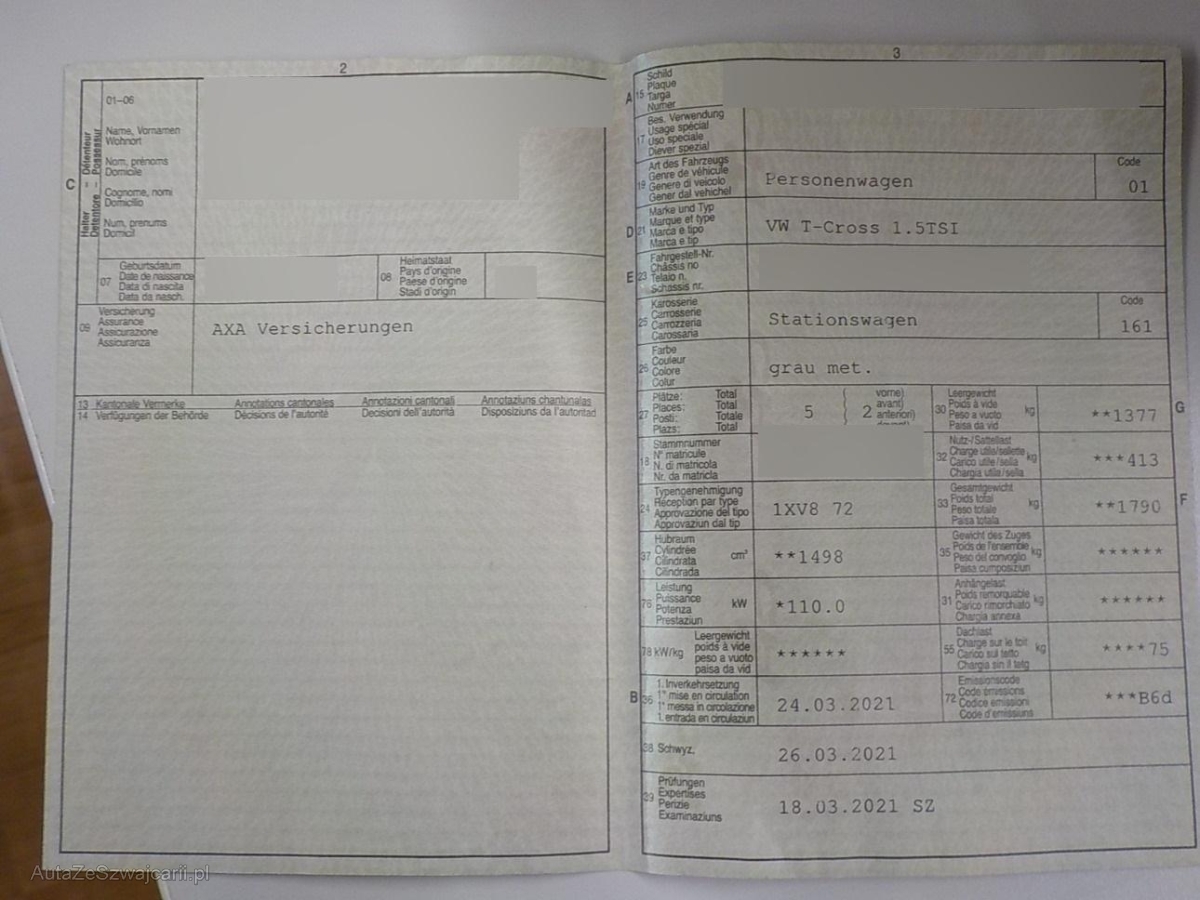 2
01-06
Halter – Détenteur
Detentore – Possessur
Name, Vornamen
Wohnort
Nom, prénoms
Domicile
C
Cognome, nomi
Domicilio
Num, prenums
Domicil
07
Geburtsdatum
Date de naissance
Data di nascita
Data da nasch.
08
Heimatstaat
Pays d'origine
Paese d'origine
Stadi d'origin
09
Versicherung
Assurance
Assicurazione
Assicuranza
AXA Versicherungen
13 Kantonale Vermerke Annotations cantonales Annotazioni cantonali Annotaziuns chantunalas
14 Verfügungen der Behörde Décisions de l'autorité Decisioni dell'autorità Disposiziuns da l'autoritad
3
A 15
Schild
Plaque
Targa
Numer
17
Bes. Verwendung
Usage spécial
Uso speciale
Diever spezial
19
Art des Fahrzeugs
Genre de véhicule
Genere di veicolo
Gener dal vehichel
Personenwagen
Code
01
D 21
Marke und Typ
Marque et type
Marca e tipo
Marca e tip
VW T-Cross 1.5TSI
E 23
Fahrgestell-Nr.
Châssis no
Telaio n.
Schassis nr.
25
Karosserie
Carrosserie
Carrozzeria
Carossaria
Stationswagen
Code
161
26
Farbe
Couleur
Colore
Colur
grau met.
27
Plätze: Total
Places: Total
Posti: Totale
Plazs: Total
5
( vorne)
( avant)
2 anteriori)
30
Leergewicht
Poids à vide
Peso a vuoto
Paisa da vid
kg
**1377
G
18
Stammnummer
N° matricule
N. di matricola
Nr. da matricla
32
Nutz-/Sattellast
Charge utile/sellette
Carico utile/sella
Chargia utila/sella
kg
***413
24
Typengenehmigung
Réception par type
Approvazione del tipo
Approvaziun dal tip
1XV8 72
33
Gesamtgewicht
Poids total
Peso totale
Paisa totala
kg
**1790
F
37
Hubraum
Cylindrée
Cilindrata
Cilindrada
cm³
**1498
35
Gewicht des Zuges
Poids de l'ensemble
Peso del convoglio
Paisa cumposiziun
kg
******
76
Leistung
Puissance
Potenza
Prestaziun
kW
*110.0
31
Anhängelast
Poids remorquable
Carico rimorchiato
Chargia annexa
kg
******
78 kW/kg
Leergewicht
poids à vide
peso a vuoto
paisa da vid
******
55
Dachlast
Charge sur le toit
Carico sul tetto
Chargia sin il tetg
kg
****75
B 36
1. Inverkehrsetzung
1re mise en circulation
1a messa in circolazione
1. entrada en circulaziun
24.03.2021
72
Emissionscode
Code émissions
Codice emissioni
Code d'emissiuns
***B6d
38 Schwyz,
26.03.2021
39
Prüfungen
Expertises
Perizie
Examinaziuns
18.03.2021 SZ
AutaZeSzwajcarii.pl